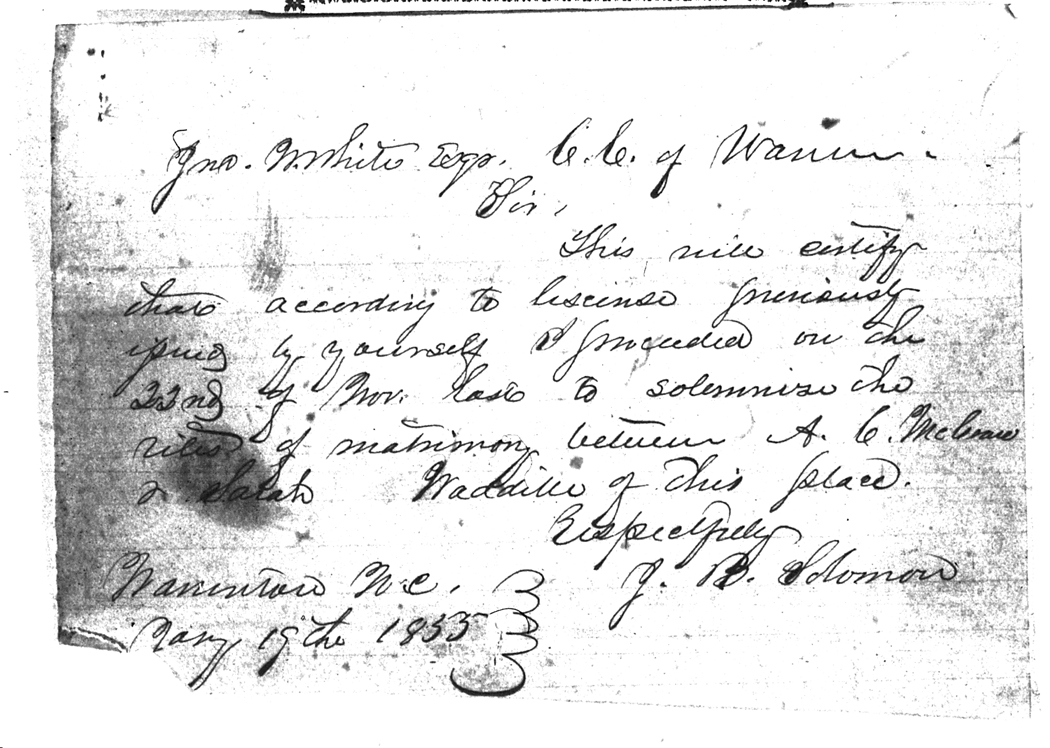 Jno. W. White Esqr. C. C. of Warren.
Sir,
This will certify
that according to liscense previously
by yourself I proceeded on the
22nd of Nov. last to solemnize the
rites of matrimony between A. C.
& Sarah Waddill of this place.
Respectfully
J. B. Solomon
Warrenton N. C.
Jany 19th 1855